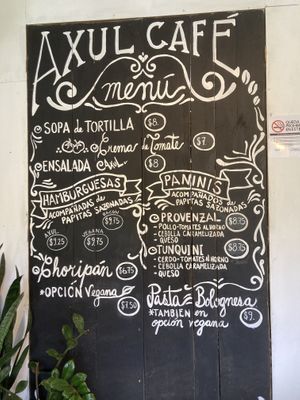 AXUL CAFÉ
menú
SOPA de TORTILLA $8.
Crema de Tomate $7
ENSALADA Axul $8
HAMBURGUESAS
ACOMPAÑADAS de
PAPITAS SAZONADAS
BACON
$9.75
AXUL
VEGANA
$9.75
Choripán $6.75
*OPCIÓN Vegana
$7.50
PANINIS
ACOMPAÑADOS de
PAPITAS
SAZONADAS
PROVENZAL $8.75
-POLLO-TOMATES ALHORNO
-CEBOLLA CARAMELIZADA
-QUESO
TUNQUINI $8.75
-CERDO-TOMATES ALHORNO
-CEBOLLA CARAMELIZADA
-QUESO
Pasta Bolognesa
*TAMBIÉN en
opción vegana
$9.